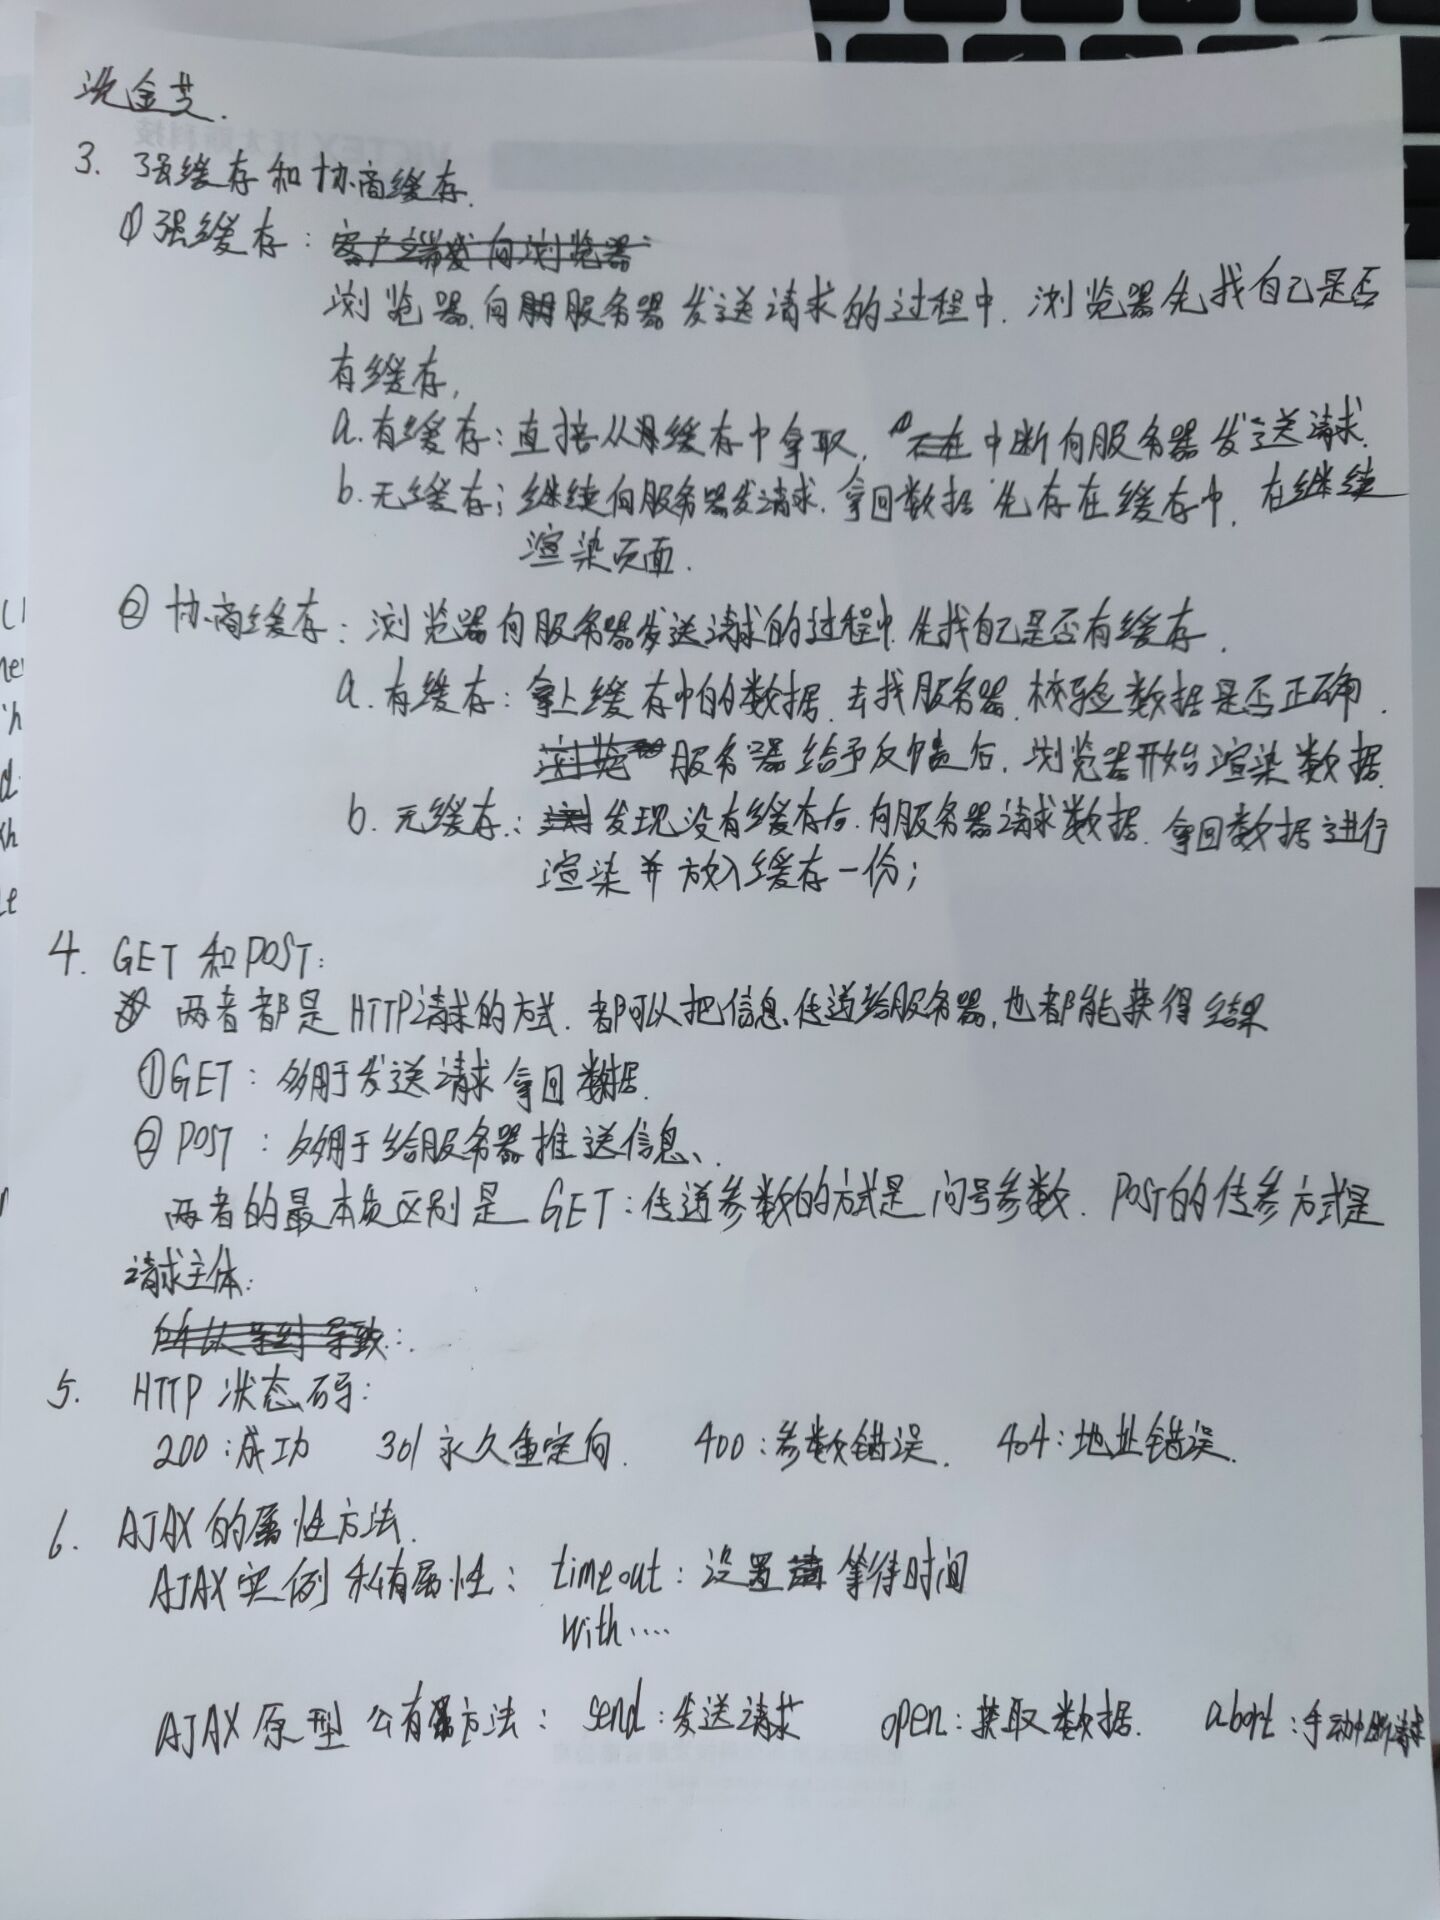 沈金芝.
3. 强缓存和协商缓存.
① 强缓存:
浏览器向服务器发送请求的过程中. 浏览器先找自己是否
有缓存,
a. 有缓存: 直接从缓存中拿取, 中断向服务器发送请求.
b. 无缓存; 继续向服务器发请求. 拿回数据 先存在缓存中. 在继续
渲染页面.
② 协商缓存: 浏览器向服务器发送请求的过程中. 先找自己是否有缓存.
a. 有缓存: 拿上缓存中的数据. 去找服务器. 校验数据是否正确.
服务器给予反馈后. 浏览器开始渲染数据.
b. 无缓存: 发现没有缓存后. 向服务器请求数据. 拿回数据进行
渲染并放入缓存一份;
4. GET 和 POST:
两者都是 HTTP请求的方式. 都可以把信息传递给服务器, 也都能获得结果
①GET: 多用于发送请求拿回数据.
② POST: 多用于给服务器推送信息、.
两者的最本质区别是 GET: 传递参数的方式是问号参数. POST的传参方式是
请求主体:
5. HTTP 状态码:
200:成功 301永久重定向. 400:参数错误. 404:地址错误.
6. AJAX的属性方法.
AJAX实例私有属性: timeout: 设置等待时间
With....
AJAX 原型 公有方法: send: 发送请求 open: 获取数据. abort: 手动中断请求